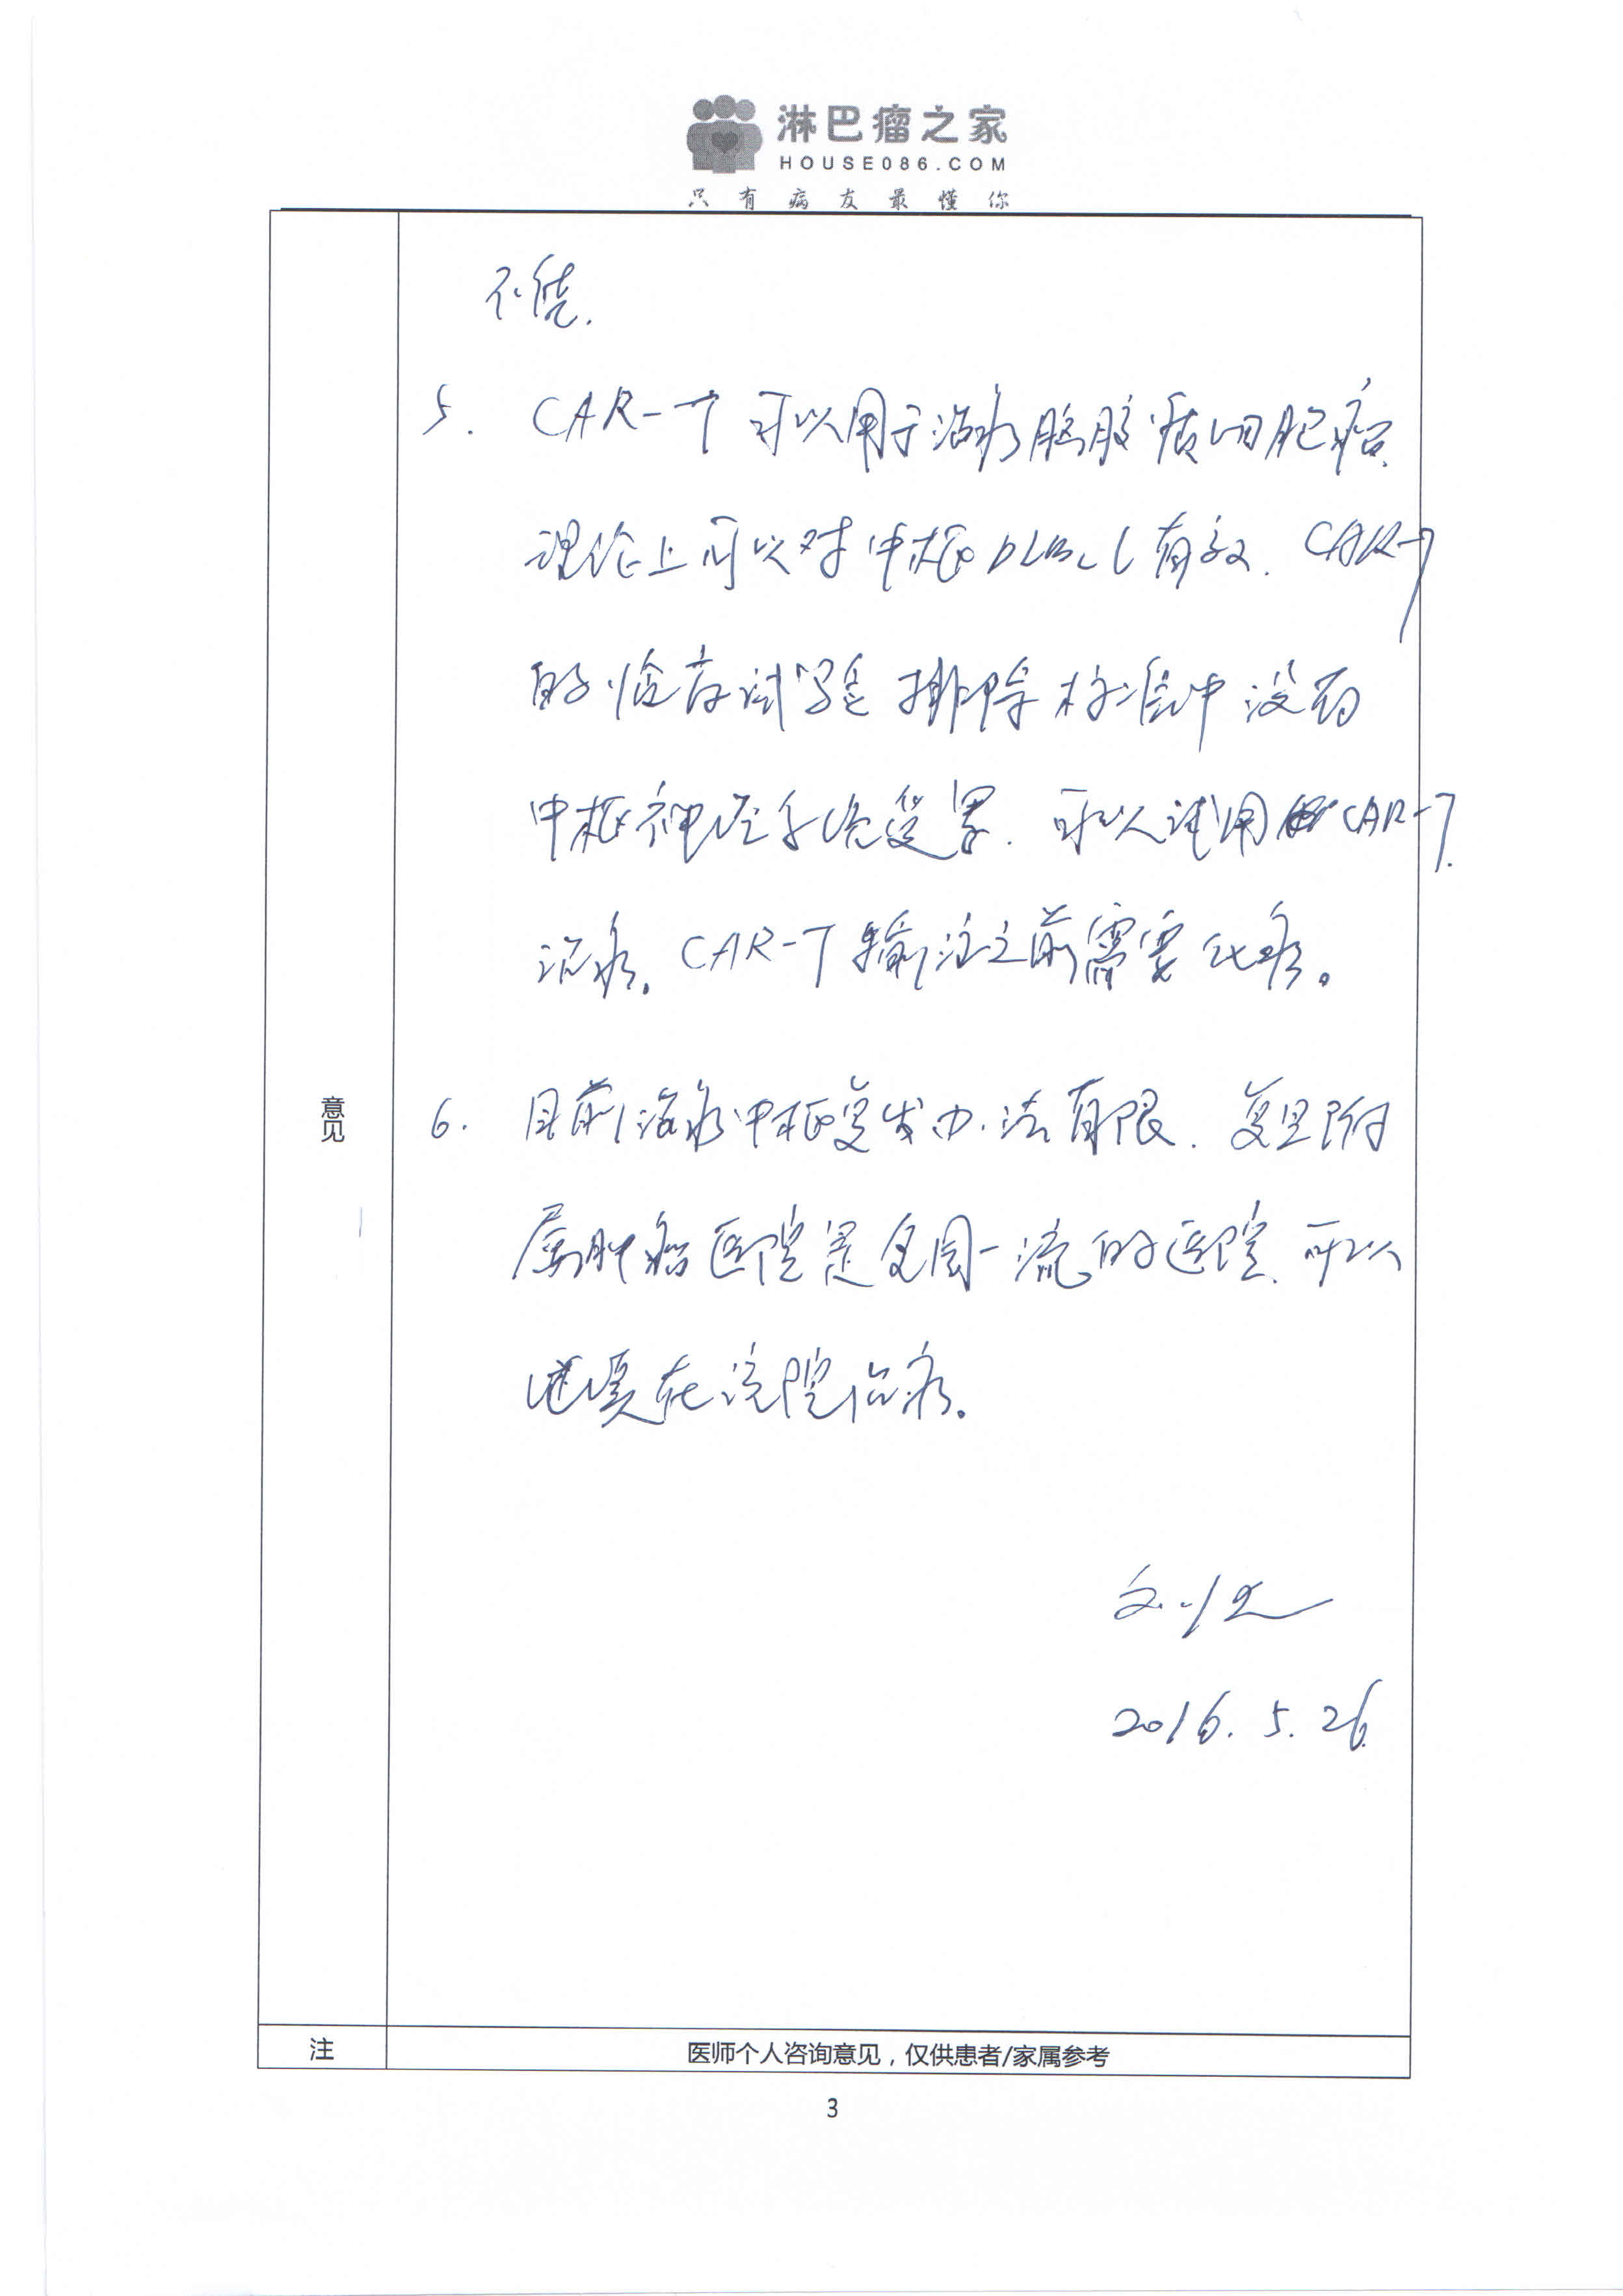 淋巴瘤之家
HOUSE086.COM
只有病友最懂你
不能.
5. CAR-T 可以用于治疗脑胶质细胞瘤.
理论上可以对中枢DLBCL有效. CAR-T
的临床试验排除标准中没有
中枢神经系统受累. 可以试用 CAR-T
治疗。CAR-T 输注之前需要化疗。
意见
6. 目前治疗中枢复发办法有限. 复旦附
属肿瘤医院是全国一流的医院. 可以
继续在该院治疗。
2016. 5. 26.
注
医师个人咨询意见,仅供患者/家属参考
3